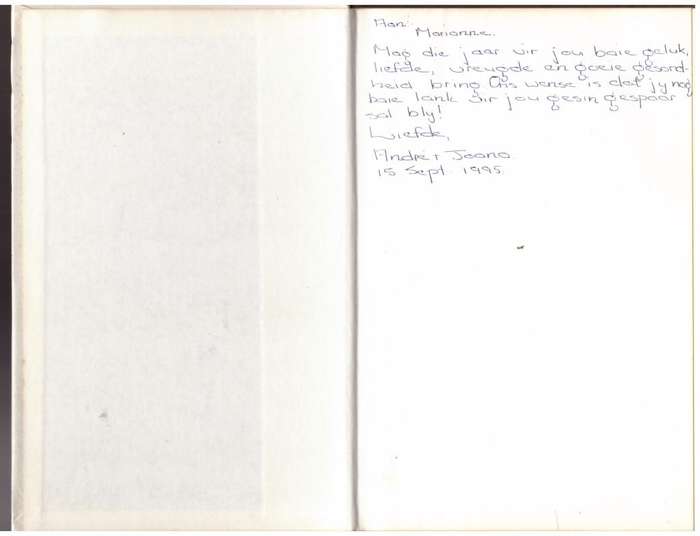 Aan:
Marianne.
Mag die jaar vir jou baie geluk,
liefde, vreugde en goeie gesond-
heid bring. Ons wense is dat jy nog
baie lank vir jou gesin gespaar
sal bly!
Liefde,
André + Joano
15 Sept. 1995